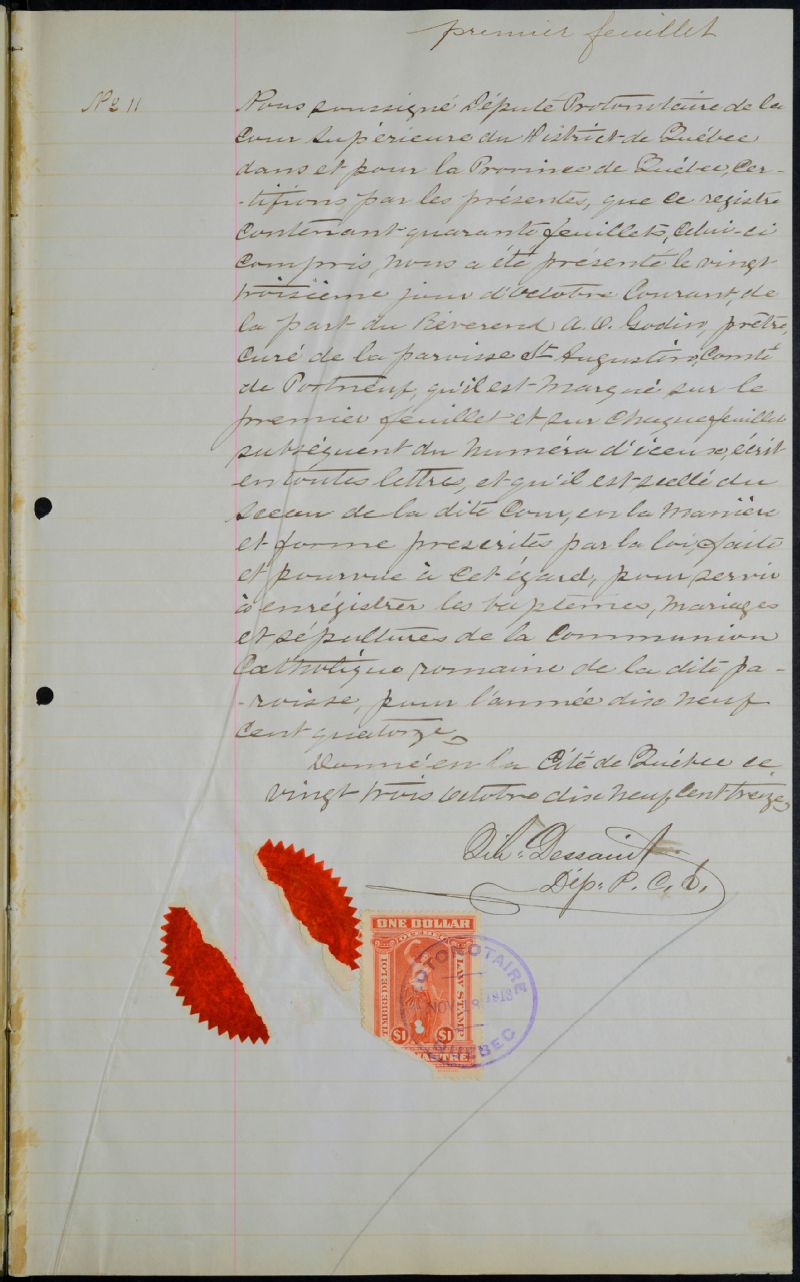 premier feuillet
No 11
Nous soussigné Député Protonotaire de la
Cour Supérieure du District de Québec
dans et pour la Province de Québec, Cer-
-tifions par les présentes, que ce registre
Contenant quarante feuillets, Celui-ci
Compris, nous a été présenté le vingt
troisième jour d'octobre Courant, de
la part du Révérend A. O. Godin, prêtre,
Curé de la paroisse St Augustin, Comté
de Portneuf, qu'il est Marqué sur le
premier feuillet et sur chaque feuillet
subséquent du numéro d'iceux, écrit
en toutes lettres, et qu'il est scellé du
Sceau de la dite Cour, en la Manière
et forme prescrites par la loi, faite
et pourvue à Cet égard, pour servir
à enrégistrer les baptêmes, Mariages
et sépultures de la Communion
Catholique romaine de la dite pa-
-roisse, pour l'année dix neuf
Cent quatorze,
Donné en la Cité de Québec ce
vingt trois octobre dix neuf Cent treize,
Dessaint
Dép. P. C. S.
ONE DOLLAR
QUEBEC
TIMBRE DE LOI
LAW STAMP
$1 $1
PIASTRE
PROTONOTAIRE
NOV 18 1913
QUEBEC